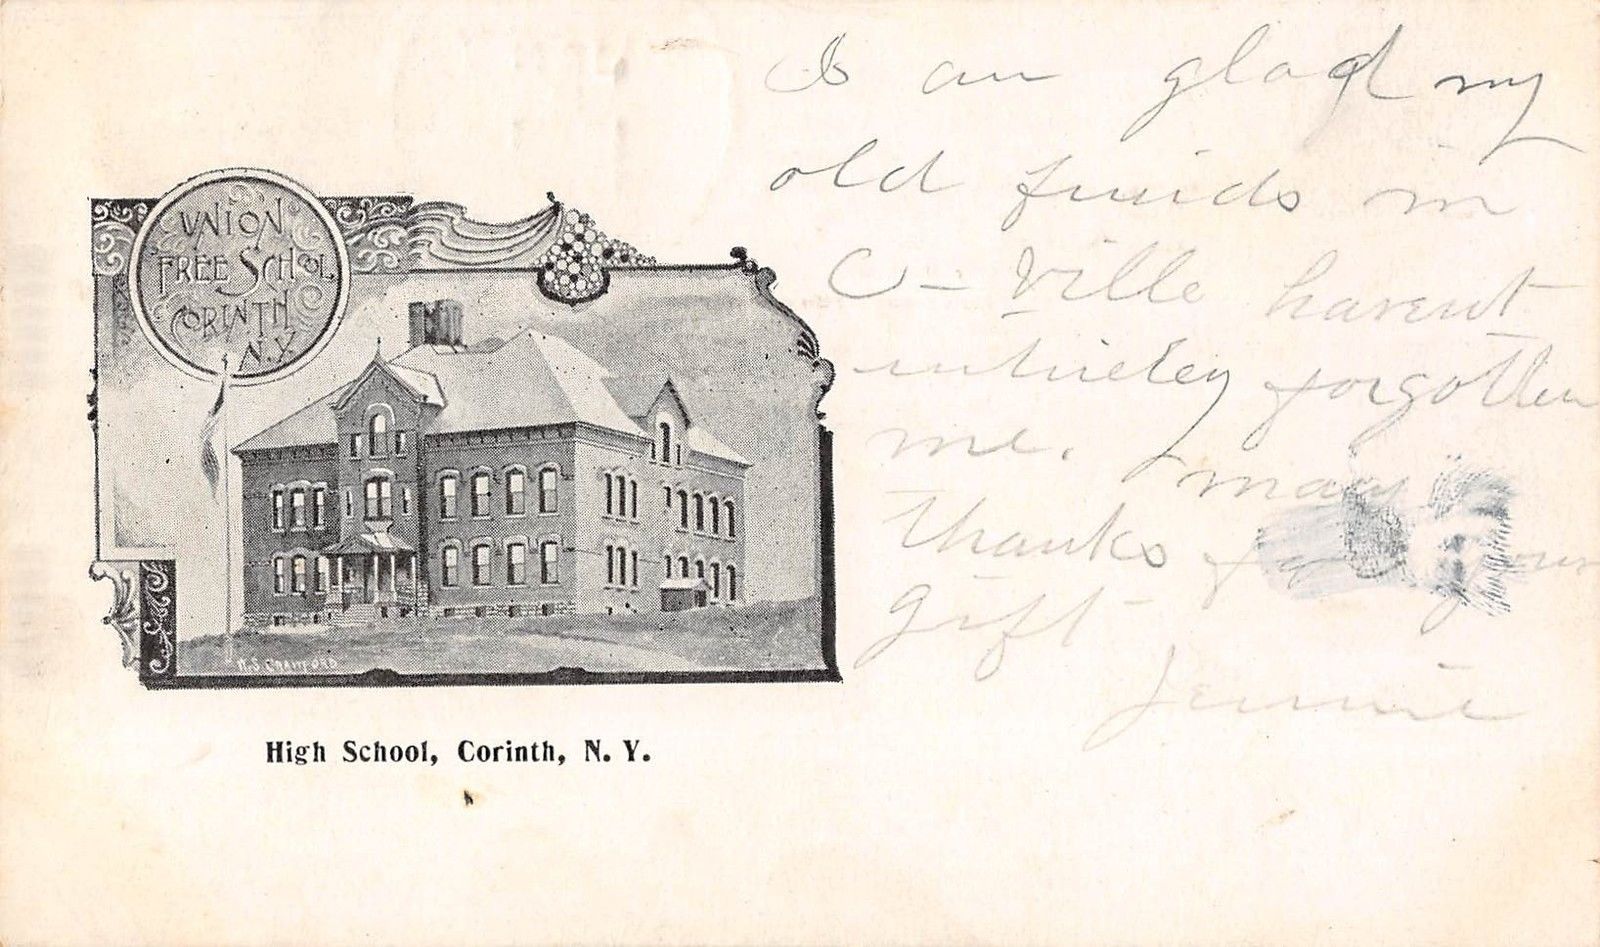 UNION
FREE SCHOOL
CORINTH
N.Y.
W.S. CRAWFORD
High School, Corinth, N. Y.
I am glad my
old friends in
C-Ville havent
entireley forgotten
me. many
thanks for your
gift
Jennie